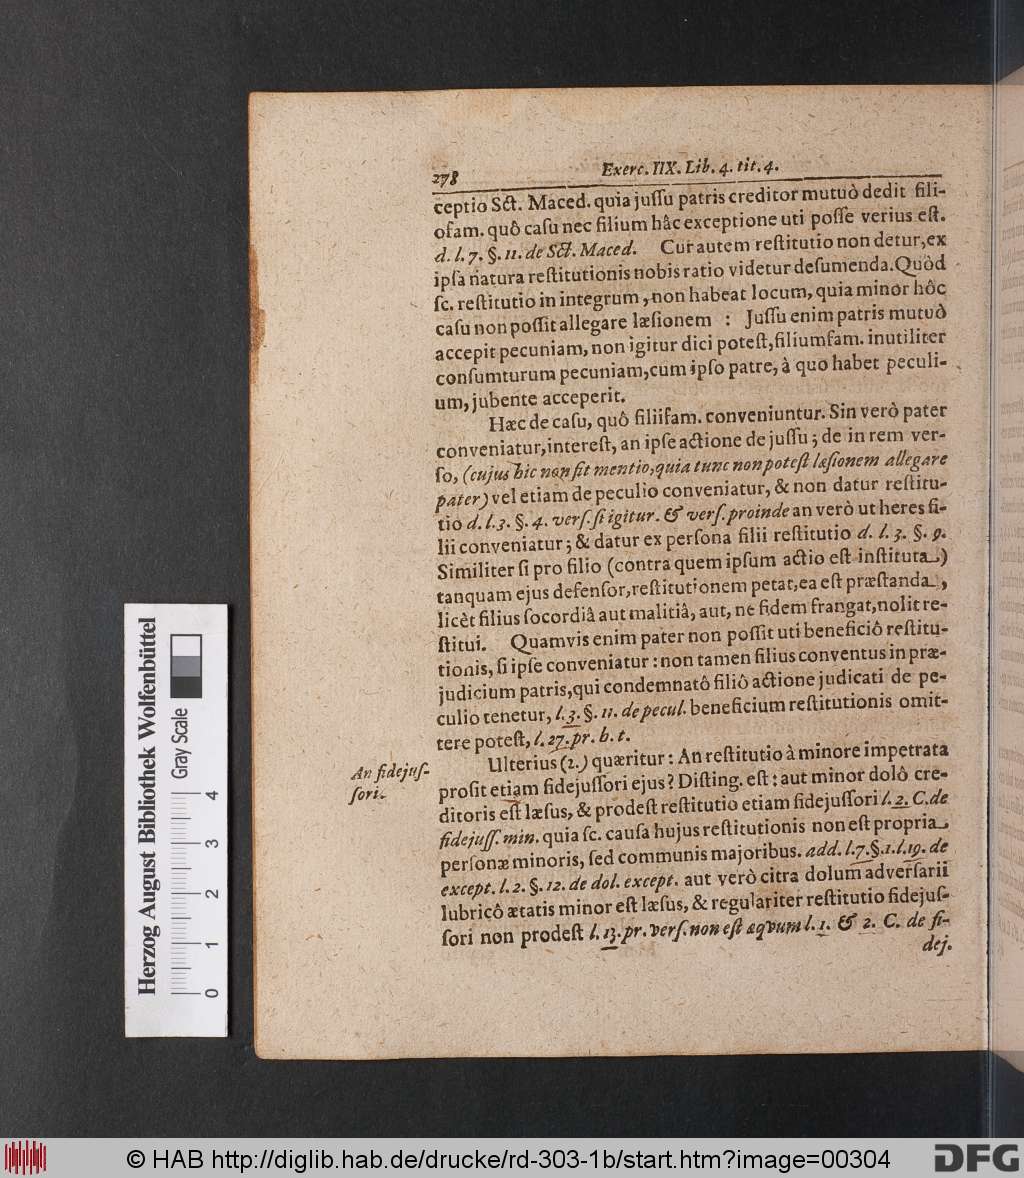 278
Exerc. IIX. Lib. 4. tit. 4.
ceptio Sct. Maced. quia juſſu patris creditor mutuò dedit fili-
ofam. quô caſu nec filium hâc exceptione uti poſſe verius eſt.
d. l. 7. §. 11. de Sct. Maced. Cur autem reſtitutio non detur, ex
ipſa natura reſtitutionis nobis ratio videtur deſumenda. Quòd
ſc. reſtitutio in integrum, non habeat locum, quia minor hôc
caſu non poſſit allegare læſionem : Juſſu enim patris mutuò
accepit pecuniam, non igitur dici poteſt, filiumfam. inutiliter
conſumturum pecuniam, cum ipſo patre, à quo habet peculi-
um, jubente acceperit.
Hæc de caſu, quô filiifam. conveniuntur. Sin verò pater
conveniatur, intereſt, an ipſe actione de juſſu; de in rem ver-
ſo, (cujus hic non fit mentio, quia tunc non poteſt læſionem allegare
pater) vel etiam de peculio conveniatur, & non datur reſtitu-
tio d. l. 3. §. 4. verſ. ſi igitur. & verſ. proinde an verò ut heres fi-
lii conveniatur; & datur ex perſona filii reſtitutio d. l. 3. §. 9.
Similiter ſi pro filio (contra quem ipſum actio eſt inſtituta)
tanquam ejus defenſor, reſtitutionem petat, ea eſt præſtanda,
licèt filius ſocordiâ aut malitiâ, aut, ne fidem frangat, nolit re-
ſtitui. Quamvis enim pater non poſſit uti beneficiô reſtitu-
tionis, ſi ipſe conveniatur : non tamen filius conventus in præ-
judicium patris, qui condemnatô filiô actione judicati de pe-
culio tenetur, l. 3. §. 11. de pecul. beneficium reſtitutionis omit-
tere poteſt, l. 27. pr. h. t.
Ulterius (2.) quæritur : An reſtitutio à minore impetrata
An fidejuſ-
ſori.
proſit etiam fidejuſſori ejus? Diſting. eſt : aut minor dolô cre-
ditoris eſt læſus, & prodeſt reſtitutio etiam fidejuſſori l. 2. C. de
fidejuſſ. min. quia ſc. cauſa hujus reſtitutionis non eſt propria
perſonæ minoris, ſed communis majoribus. add. l. 7. §. 1. l. 19. de
except. l. 2. §. 12. de dol. except. aut verò citra dolum adverſarii
lubricô ætatis minor eſt læſus, & regulariter reſtitutio fidejuſ-
ſori non prodeſt l. 13. pr. verſ. non eſt æqvum l. 1. & 2. C. de fi-
dej.
Herzog August Bibliothek Wolfenbüttel
Gray Scale
0 1 2 3 4
© HAB http://diglib.hab.de/drucke/rd-303-1b/start.htm?image=00304
DFG